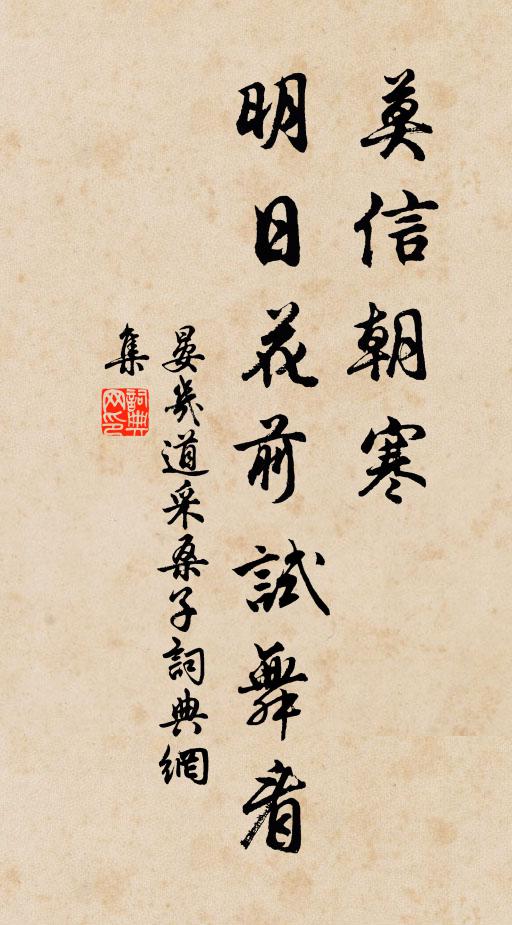 莫信朝寒
明日花前試舞看
晏幾道采桑子詞典網
集
詞典
网印